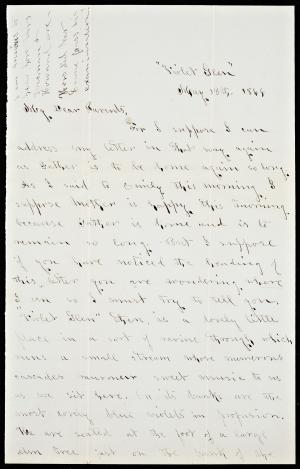 "Violet Glen"
May 18th, 1869
My Dear Parents,
For I suppose I can
address my letter in that way again
as Father is to be home again so long.
As I said to Emily this morning I
suppose Mother is happy this morning
because Father is home and is to
remain so long. But I suppose
if you have noticed the heading of
this letter you are wondering where
I am so I must try to tell you.
"Violet Glen" then, is a lovely little
place in a sort of ravine through which
runs a small stream whose numerous
cascades murmur sweet music to us
as we sit here. On its banks are the
most lovely blue violets in profusion.
We are seated at the foot of a large
elm tree just on the bank of the